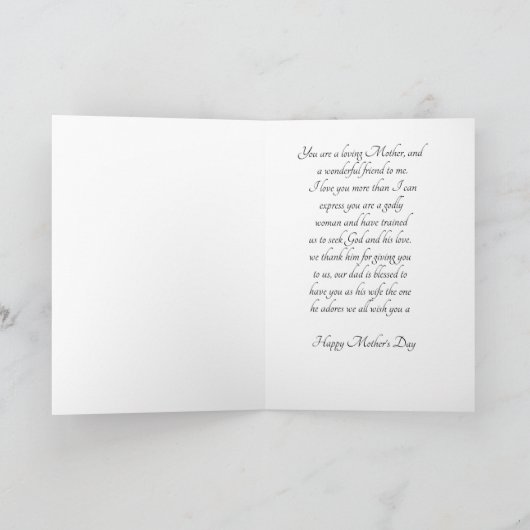 You are a loving Mother, and
a wonderful friend to me.
I love you more than I can
express you are a godly
woman and have trained
us to seek God and his love.
we thank him for giving you
to us, our dad is blessed to
have you as his wife the one
he adores we all wish you a
Happy Mother's Day